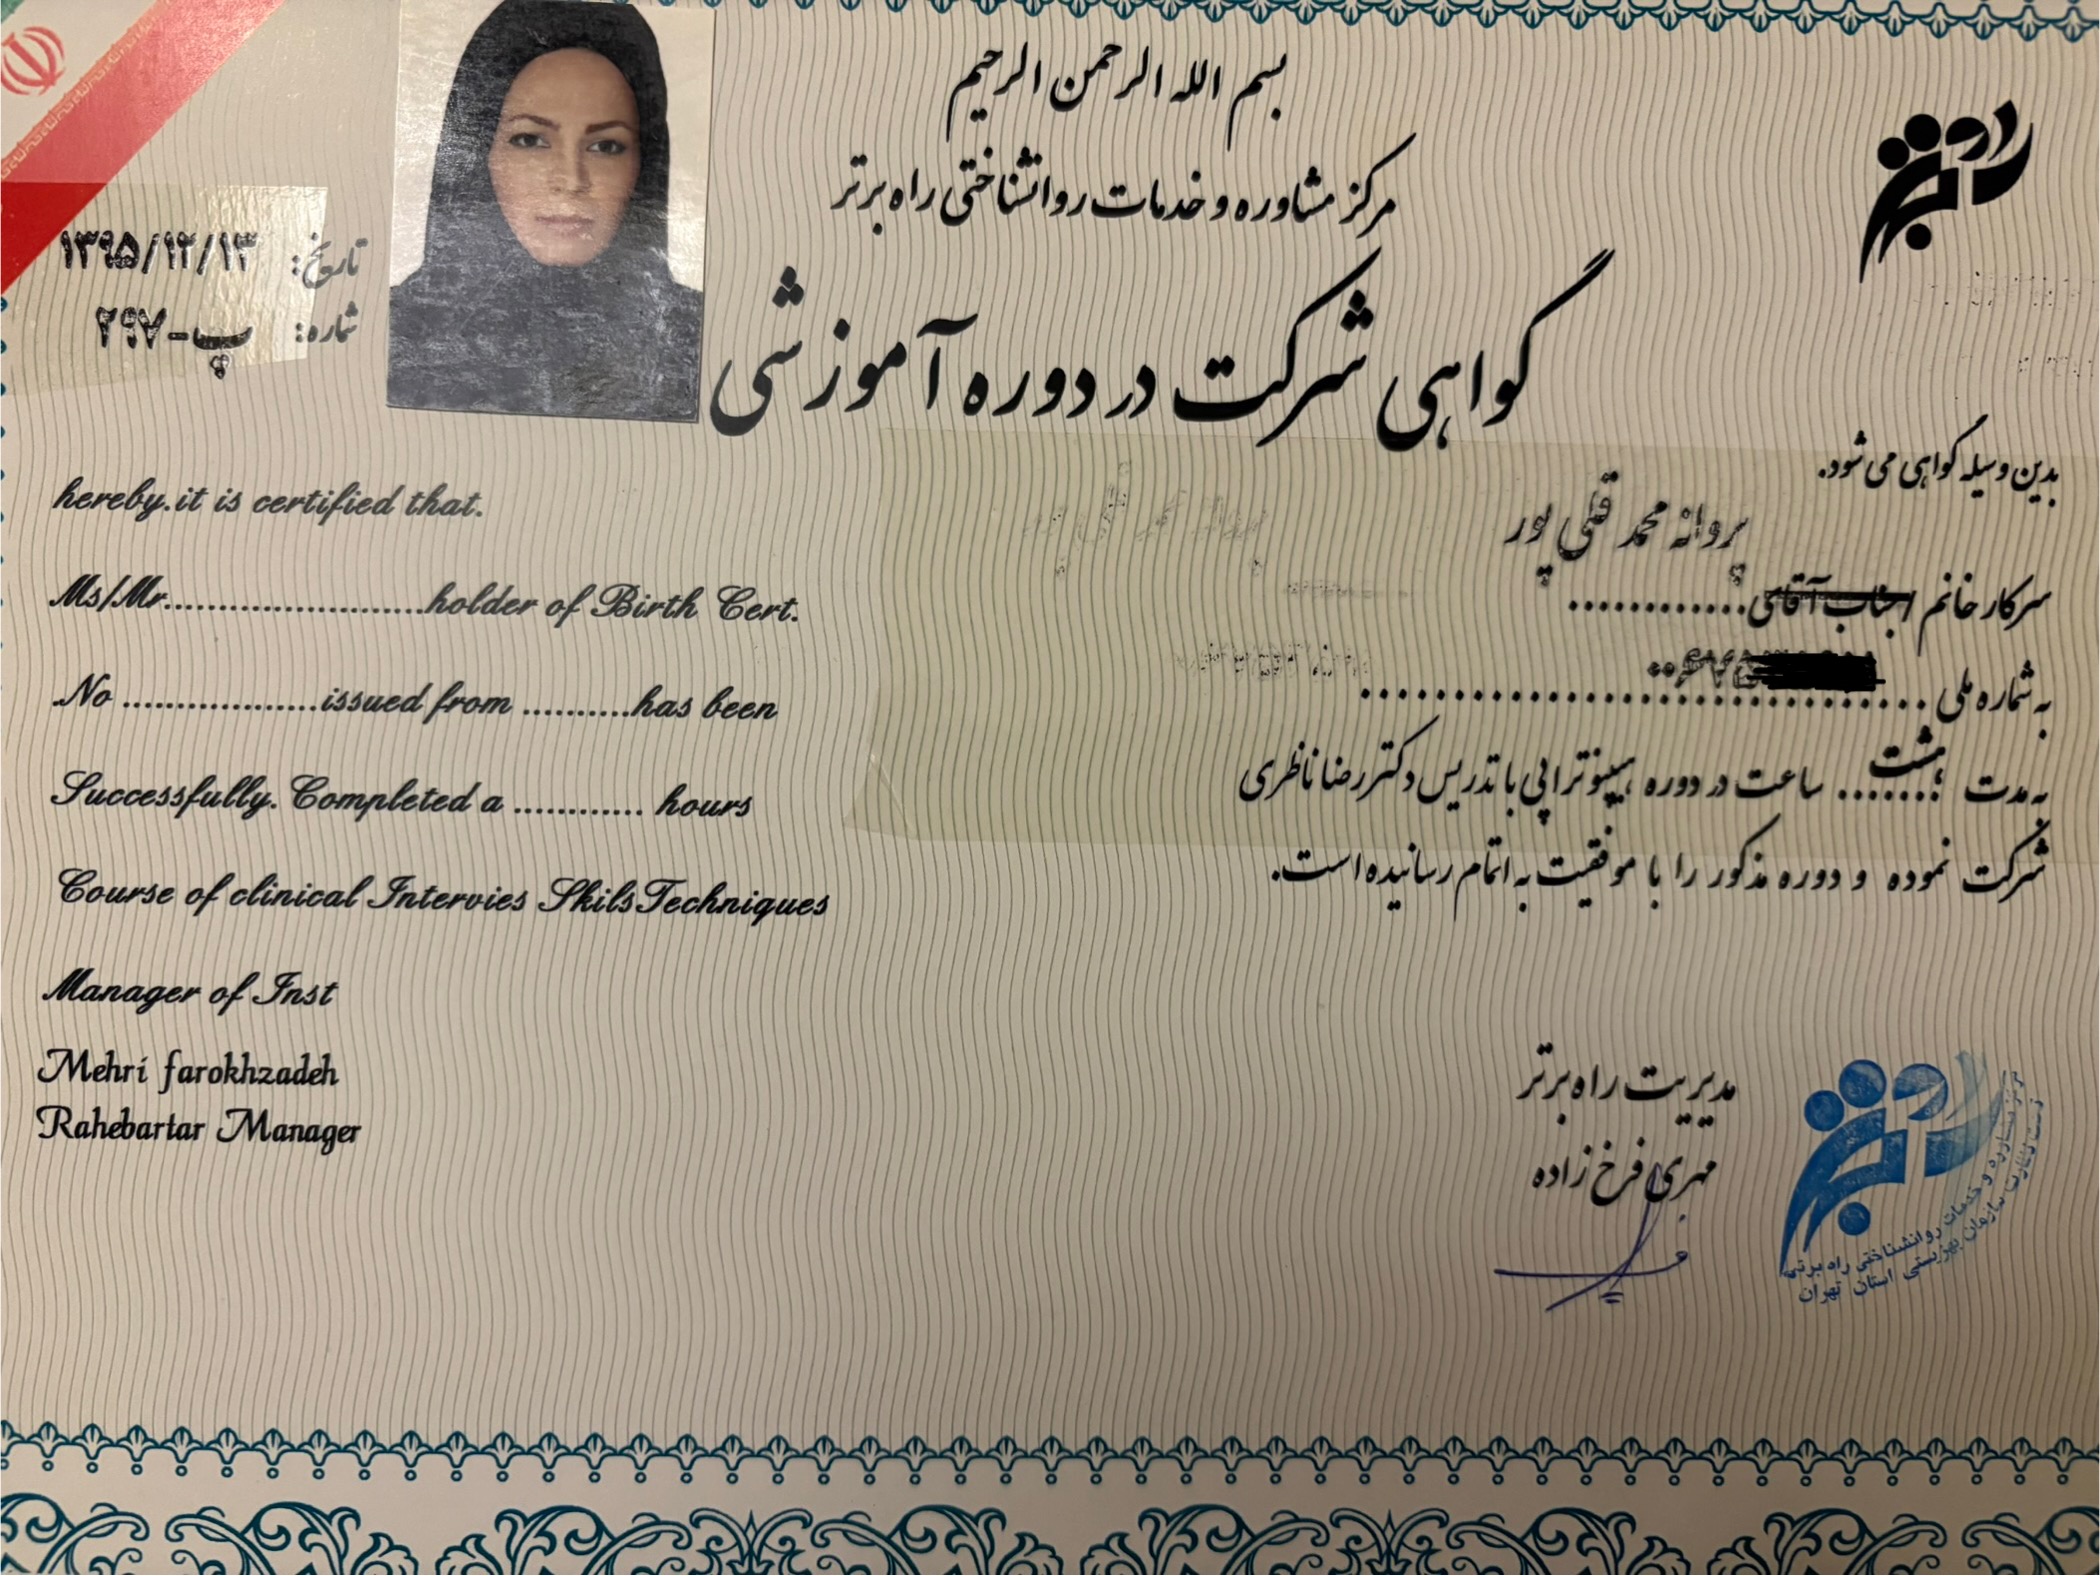 بسم الله الرحمن الرحیم
مرکز مشاوره و خدمات روانشناختی راه برتر
راه برتر
تاریخ: ۱۳۹۵/۱۲/۱۳
شماره: ۲۹۸-پ
گواهی شرکت در دوره آموزشی
بدین وسیله گواهی می شود.
پروانه محمد قلی پور
سرکار خانم / جناب آقای ............
به شماره ملی ................................
به مدت هشت ........ ساعت در دوره هیپنوتراپی با تدریس دکتر رضا ناظری
شرکت نموده و دوره مذکور را با موفقیت به اتمام رسانیده است.
مدیریت راه برتر
مهری فرخ زاده
راه برتر
مرکز مشاوره و خدمات روانشناختی راه برتر
تحت نظارت سازمان بهزیستی استان تهران
hereby.it is certified that.
Ms/Mr........................holder of Birth Cert.
No ..................issued from ..........has been
Successfully. Completed a ............ hours
Course of clinical Intervies Skils Techniques
Manager of Inst
Mehri farokhzadeh
Rahebartar Manager